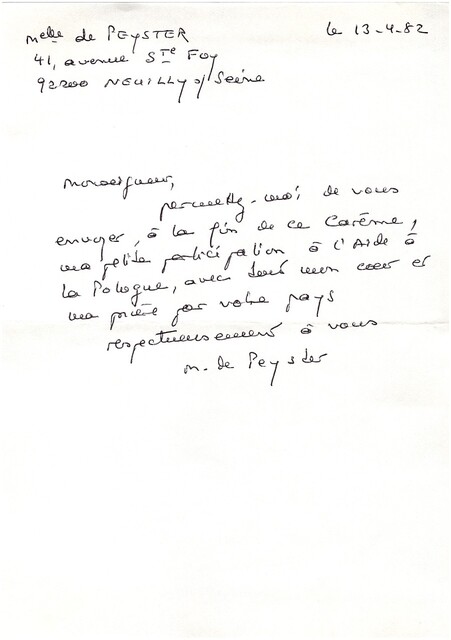 Melle de PEYSTER
le 13-4-82
41, avenue Ste Foy
92200 NEUILLY s/ Seine
Monseigneur,
permettez-moi de vous
envoyer, à la fin de ce Carême,
ma petite participation à l'Aide à
la Pologne, avec tout mon coeur et
ma prière pour votre pays
respectueusement à vous
M. de Peyster